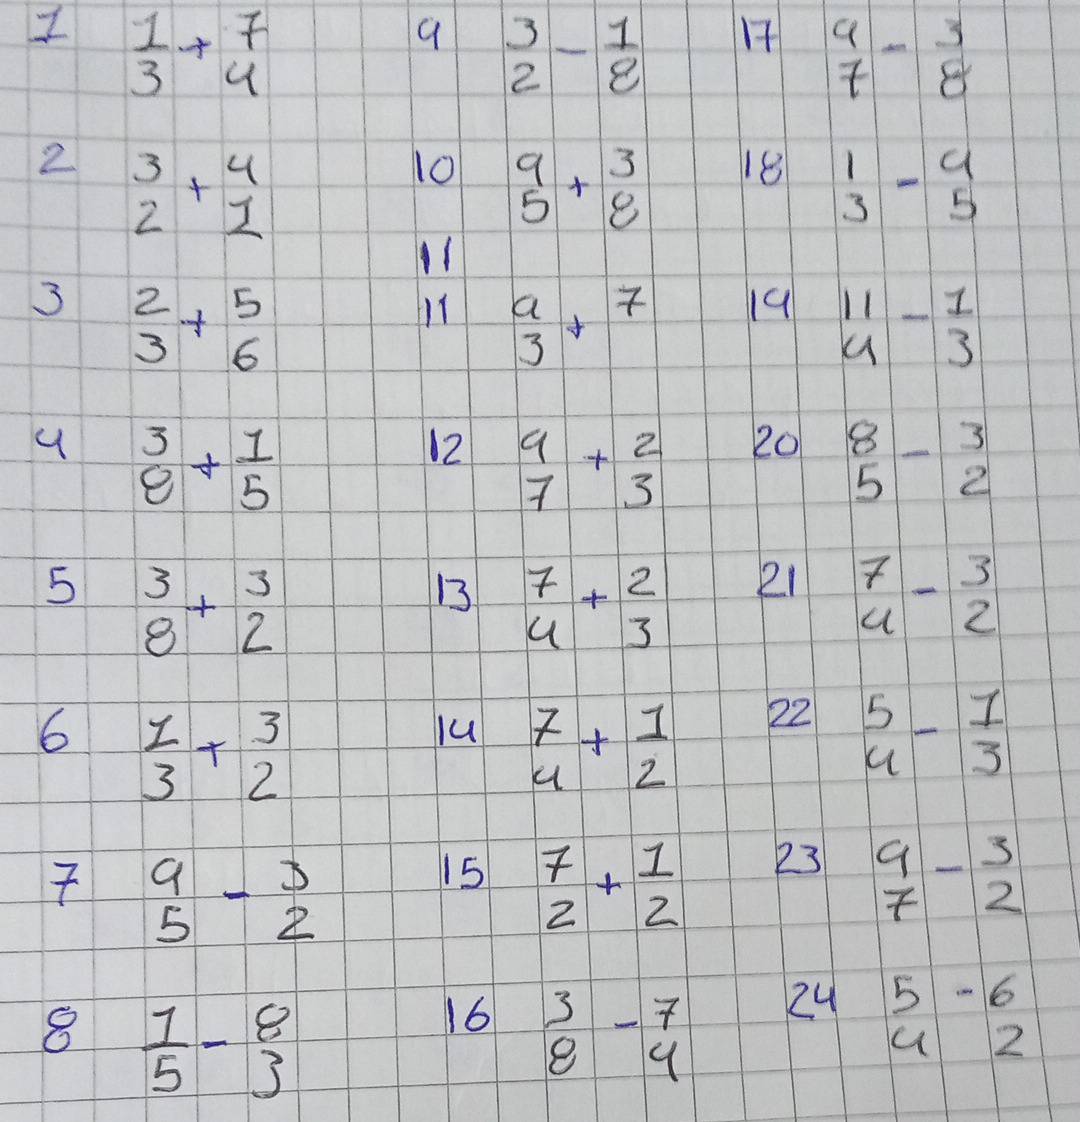 1 1/3 + 7/4
2 3/2 + 4/1
3 2/3 + 5/6
4 3/8 + 1/5
5 3/8 + 3/2
6 1/3 + 3/2
7 9/5 - 3/2
8 1/5 - 8/3
9 3/2 - 1/8
10 9/5 + 3/8
11
11 9/3 + 7
12 9/7 + 2/3
13 7/4 + 2/3
14 7/4 + 1/2
15 7/2 + 1/2
16 3/8 - 7/4
17 9/7 - 3/8
18 1/3 - 9/5
19 11/4 - 1/3
20 8/5 - 3/2
21 7/4 - 3/2
22 5/4 - 1/3
23 9/7 - 3/2
24 5/4 - 6/2